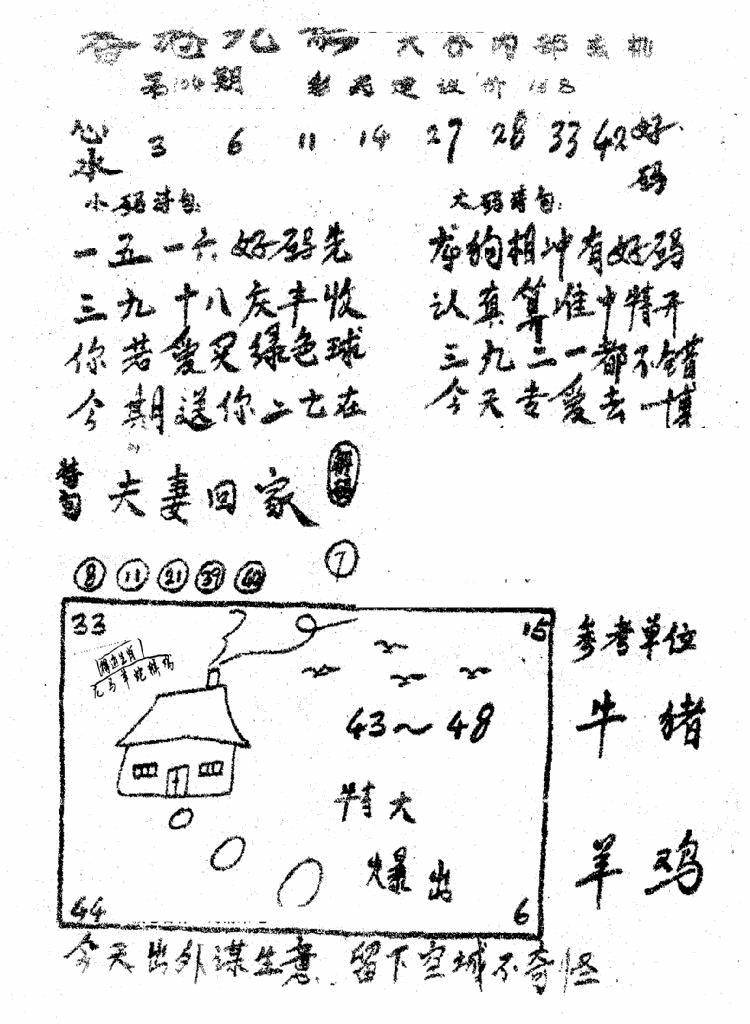 香港九和 大会内部玄机
第104期 彩民建议价 168
心水 3 6 11 14 27 28 33 42 好码
小码诗句:
一五一六好码先
三九十八庆丰收
你若爱买绿色球
今期送你二七在
大码诗句:
龙狗相冲有好码
认真算准中特开
三九二一都不错
今天专爱去一博
特句 夫妻回家
解码
7
8 11 21 39
33 15
43～48
特大
爆出
44 6
参考单位
牛 猪
羊 鸡
今天出外谋生意 留下空城不奇怪